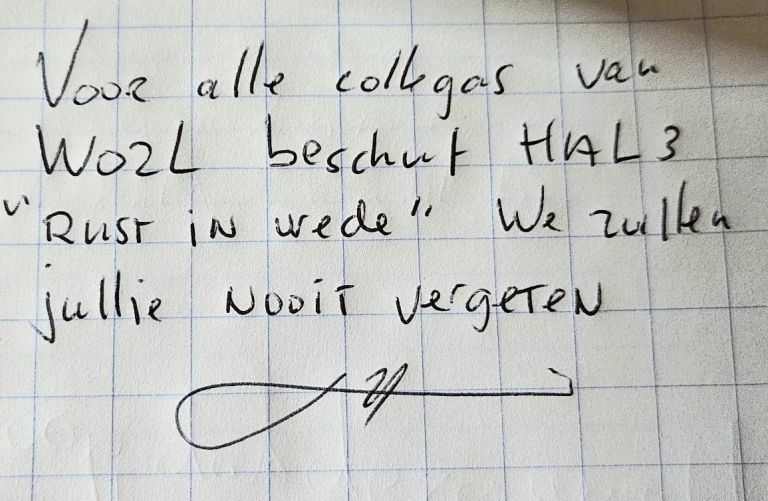 Voor alle collegas van
WO2L beschut HAL 3
"Rust in vrede" We zullen
jullie NOOIT vergeten